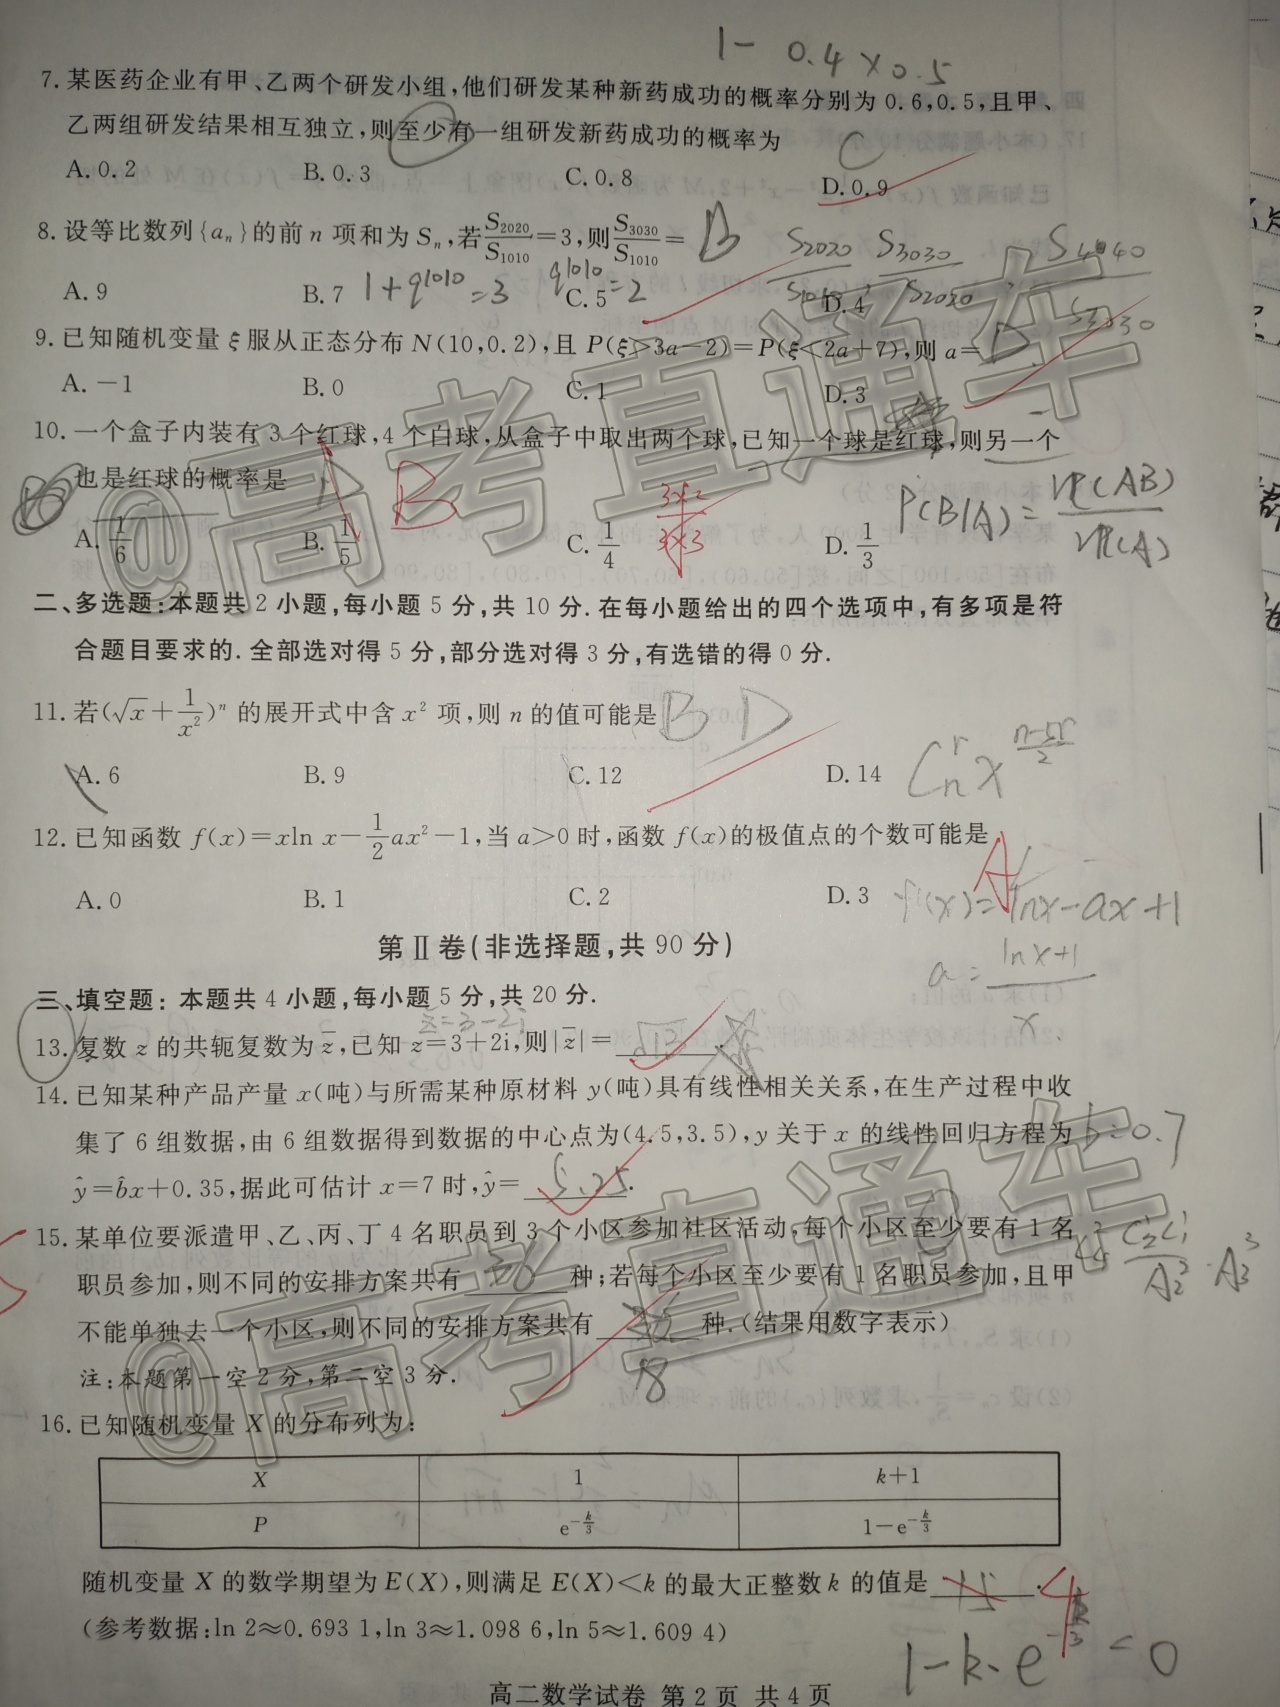 1-0.4×0.5
7.某医药企业有甲、乙两个研发小组,他们研发某种新药成功的概率分别为0.6,0.5,且甲、
乙两组研发结果相互独立,则至少有一组研发新药成功的概率为 C
A.0.2 B.0.3 C.0.8 D.0.9
8.设等比数列{aₙ}的前n项和为Sₙ,若S₂₀₂₀/S₁₀₁₀=3,则S₃₀₃₀/S₁₀₁₀= B
A.9 B.7 C.5 D.4
1+q¹⁰¹⁰=3 q¹⁰¹⁰=2
9.已知随机变量ξ服从正态分布N(10,0.2),且P(ξ>3a-2)=P(ξ<2a+7),则a= D
A.-1 B.0 C.1 D.3
10.一个盒子内装有3个红球,4个白球,从盒子中取出两个球,已知一个球是红球,则另一个
也是红球的概率是 B
A.1/6 B.1/5 C.1/4 D.1/3
P(B|A)=n(AB)/n(A)
二、多选题:本题共2小题,每小题5分,共10分.在每小题给出的四个选项中,有多项是符
合题目要求的.全部选对得5分,部分选对得3分,有选错的得0分.
11.若(√x+1/x²)ⁿ的展开式中含x²项,则n的值可能是 BD
A.6 B.9 C.12 D.14
12.已知函数f(x)=xln x-1/2ax²-1,当a>0时,函数f(x)的极值点的个数可能是
A.0 B.1 C.2 D.3
f'(x)=lnx-ax+1
a=(lnx+1)/x
第Ⅱ卷(非选择题,共90分)
三、填空题:本题共4小题,每小题5分,共20分.
z̄=3-2i
13.复数z的共轭复数为z̄,已知z=3+2i,则|z̄|=√13.
14.已知某种产品产量x(吨)与所需某种原材料y(吨)具有线性相关关系,在生产过程中收
集了6组数据,由6组数据得到数据的中心点为(4.5,3.5),y关于x的线性回归方程为
b=0.7
ŷ=b̂x+0.35,据此可估计x=7时,ŷ=5.25.
15.某单位要派遣甲、乙、丙、丁4名职员到3个小区参加社区活动,每个小区至少要有1名
职员参加,则不同的安排方案共有36种;若每个小区至少要有1名职员参加,且甲
不能单独去一个小区,则不同的安排方案共有____种.(结果用数字表示)
18
注:本题第一空2分,第二空3分.
16.已知随机变量X的分布列为:
X 1 k+1
P e^(-k/3) 1-e^(-k/3)
随机变量X的数学期望为E(X),则满足E(X)<k的最大正整数k的值是15. 4
(参考数据:ln 2≈0.693 1,ln 3≈1.098 6,ln 5≈1.609 4)
1-k·e^(-k/3)<0
高二数学试卷 第2页 共4页
@高考直通车
@高考直通车